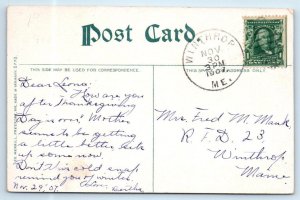 Post Card.
THIS SIDE MAY BE USED FOR CORRESPONDENCE.
THE ADDRESS ONLY
WINTHROP
NOV
30
1907
ME.
Dear Leona:
How are you
after Thanksgiving
Day is over? Mother
seems to be getting
a little better. Sits
up some now.
Don't this cold snap
remind you of winter.
Nov. 29, 07.
Bertha
Mrs. Fred M. Mank
R. F. D. 23
Winthrop
Maine